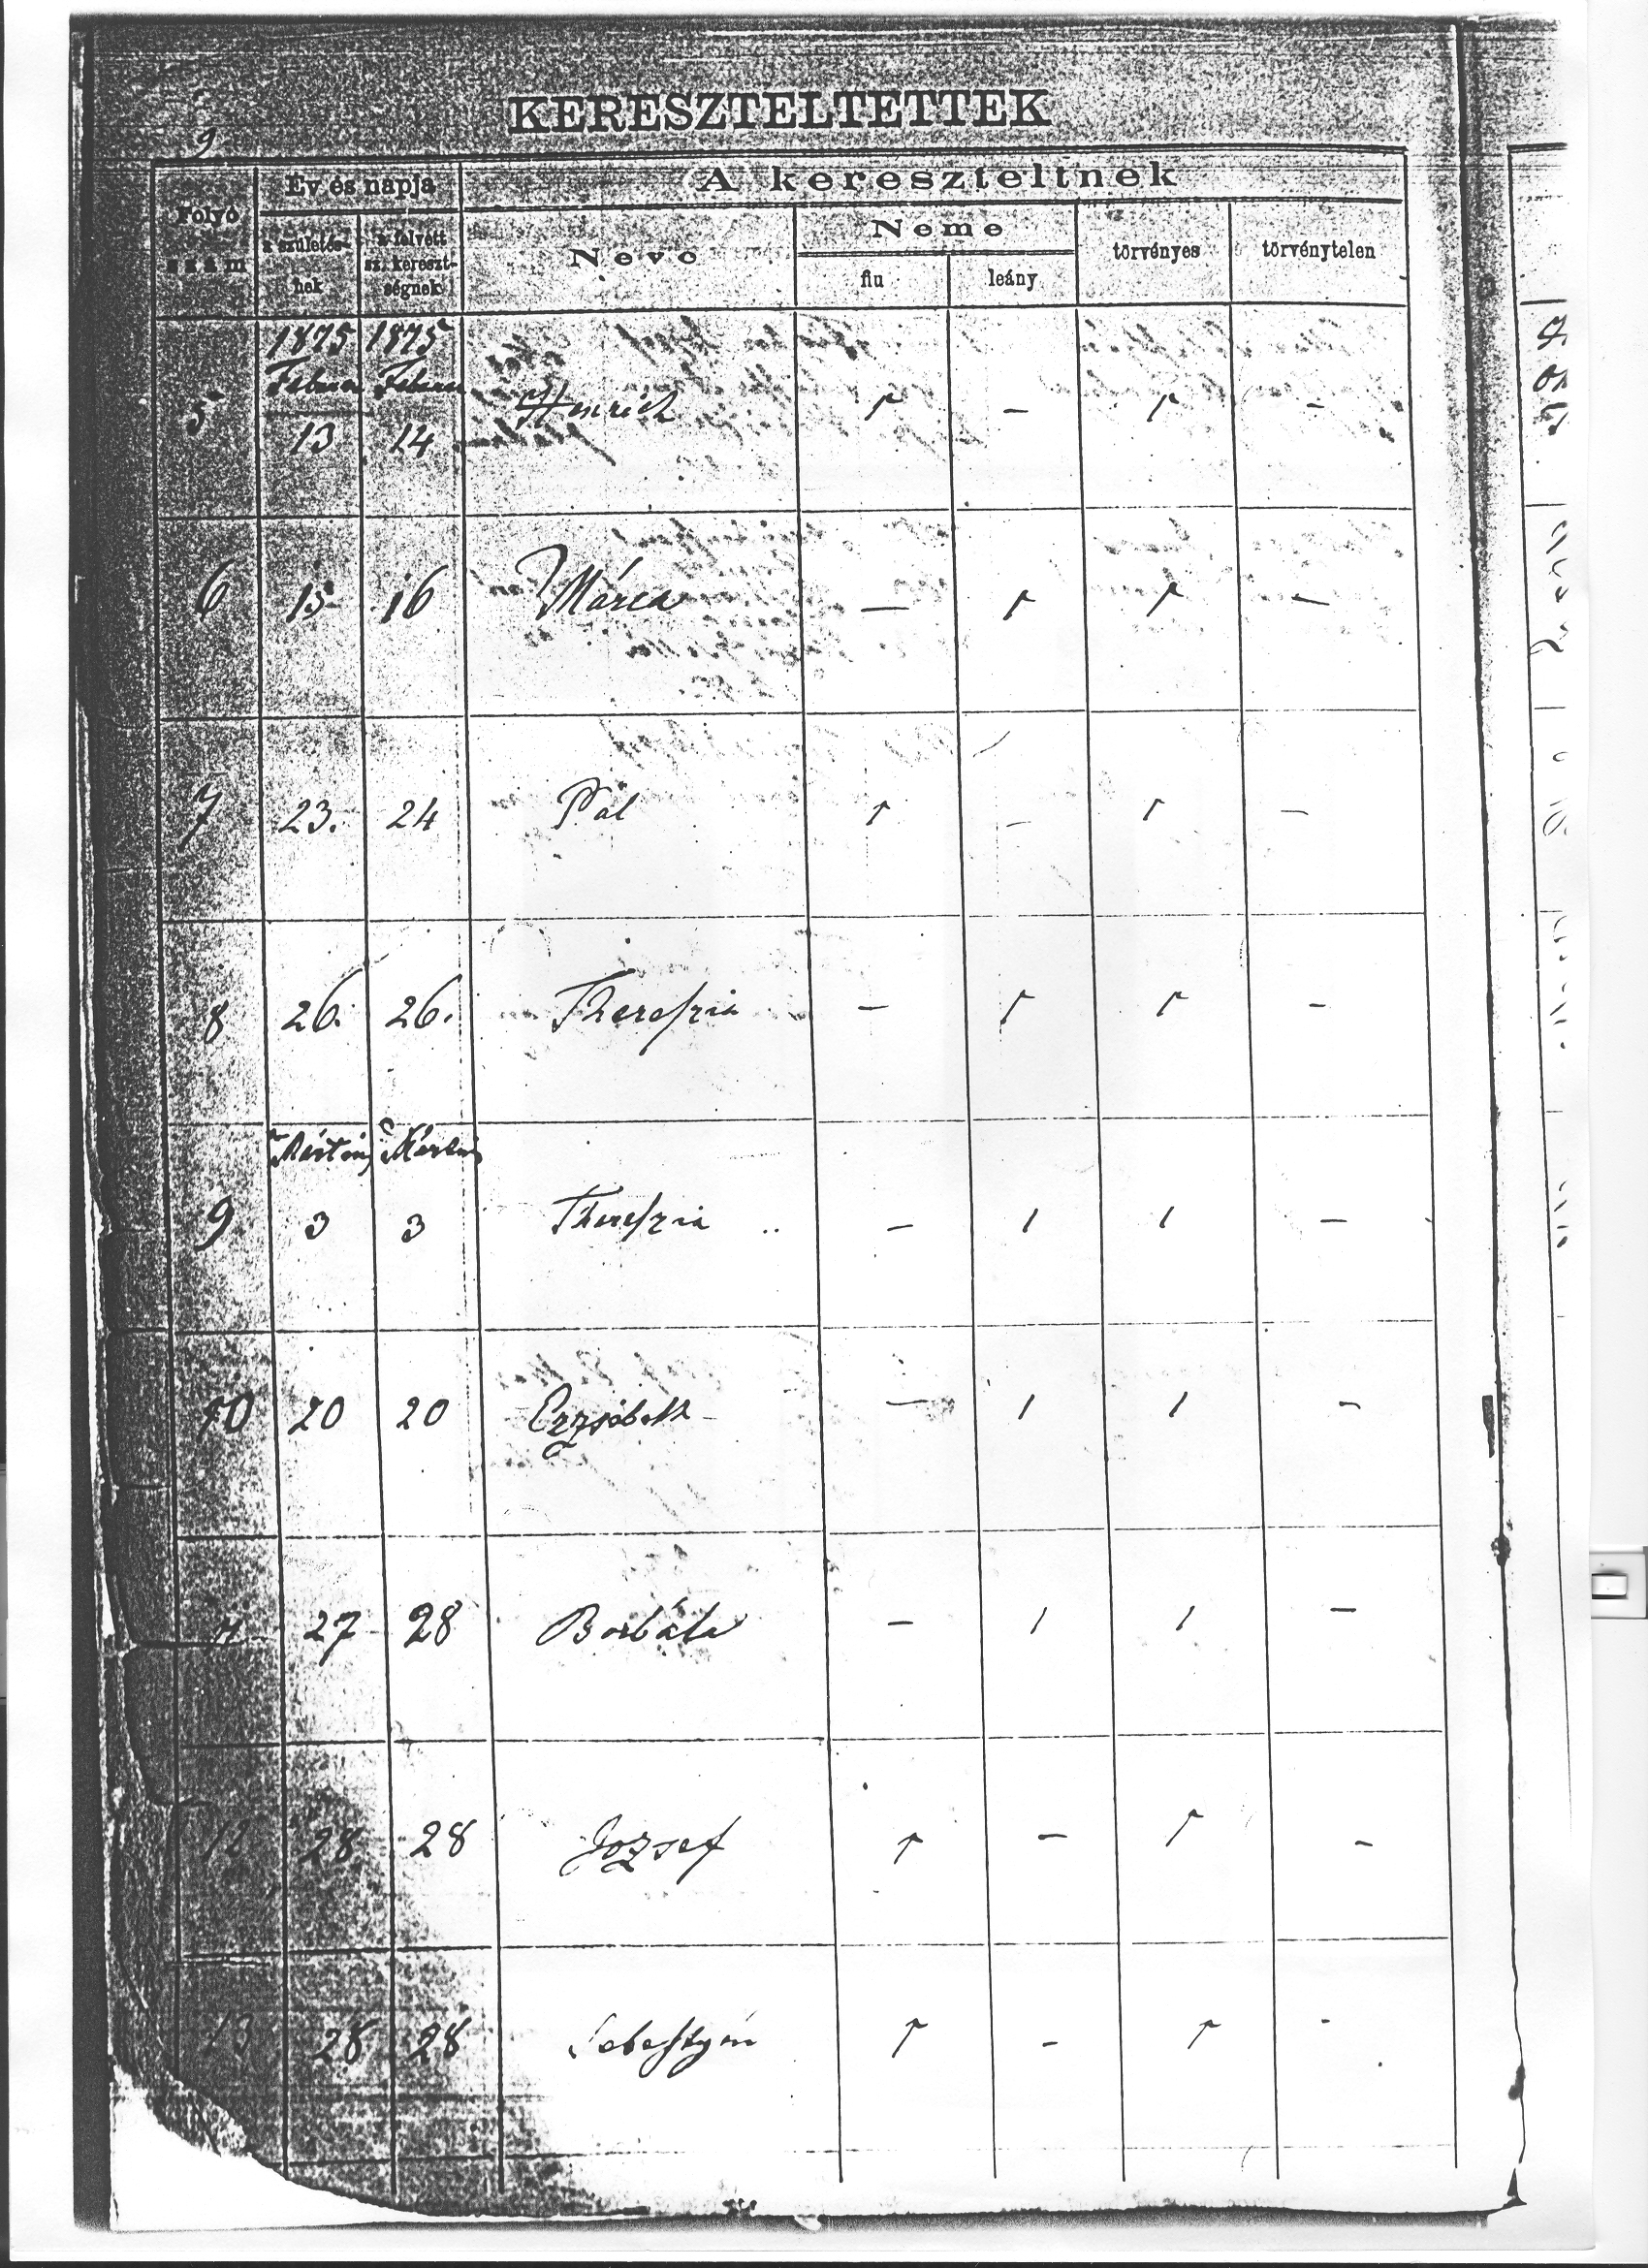 9
KERESZTELTETTEK
Folyó szám
Év és napja
a születés-
nek
a felvett
sz. kereszt-
ségnek
A kereszteltnek
Neve
Neme
fiu
leány
törvényes
törvénytelen
1875 1875
5 13 14 Henrich 1 – 1 –
6 15 16 Mária – 1 1 –
7 23. 24 Pál 1 – 1 –
8 26. 26. Thereszia – 1 1 –
9 3 3 Thereszia – 1 1 –
10 20 20 Erzsébeth – 1 1 –
11 27 28 Borbála – 1 1 –
12 28 28 József 1 – 1 –
13 28 28 Sebestyén 1 – 1 –